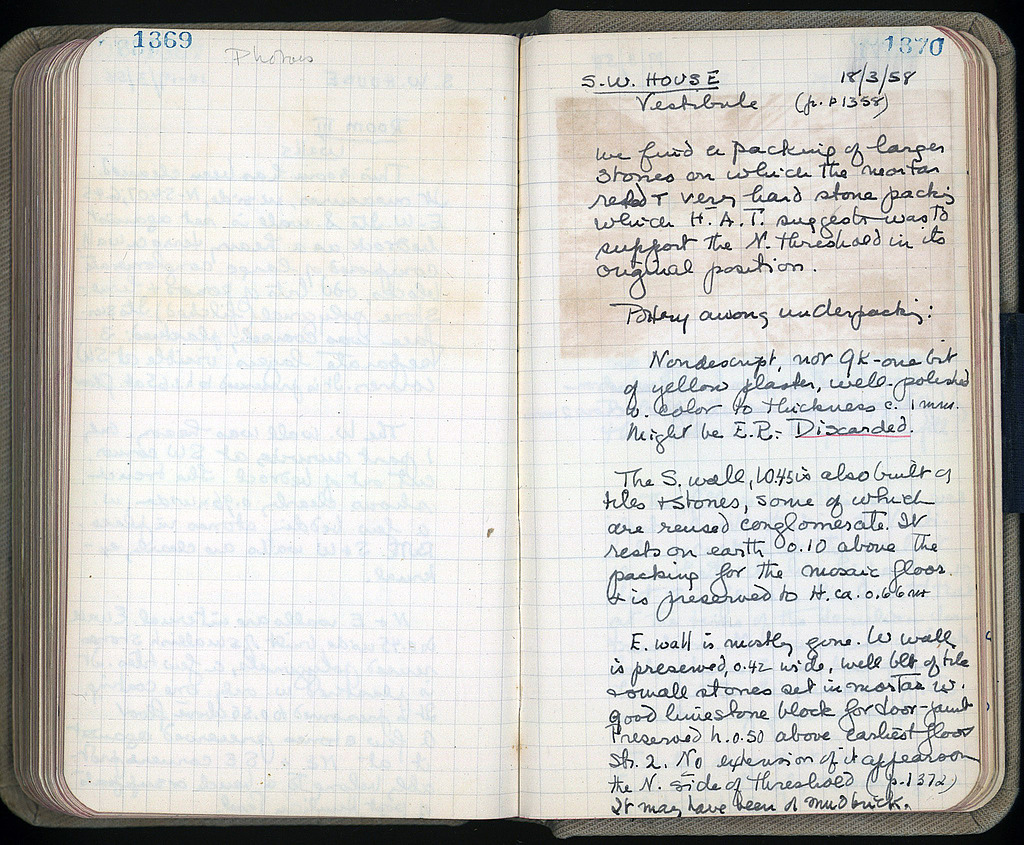 1369
Photos
1370
S.W. HOUSE 18/3/58
Vestibule (p. 1358)
we find a packing of larger
stones on which the mortar
rested + very hard stone packing
which H.A.T. suggests was to
support the N. threshold in its
original position.
Pottery among underpacking:
Nondescript, not 9K - one bit
of yellow plaster, well-polished
w. color to thickness c. 1 mm.
Might be E.R. - Discarded.
The S. wall, 10.45 is also built of
tiles + stones, some of which
are reused conglomerate. It
rests on earth 0.10 above the
packing for the mosaic floor
& is preserved to H. ca. 0.66 m
E. wall is mostly gone. W wall
is preserved, 0.42 wide, well blt of tile
& small stones set in mortar w.
good limestone block for door-jamb
Preserved h. 0.50 above earliest floor
Str. 2. No extension of it appears on
the N. side of threshold (p. 1372)
It may have been of mudbrick.